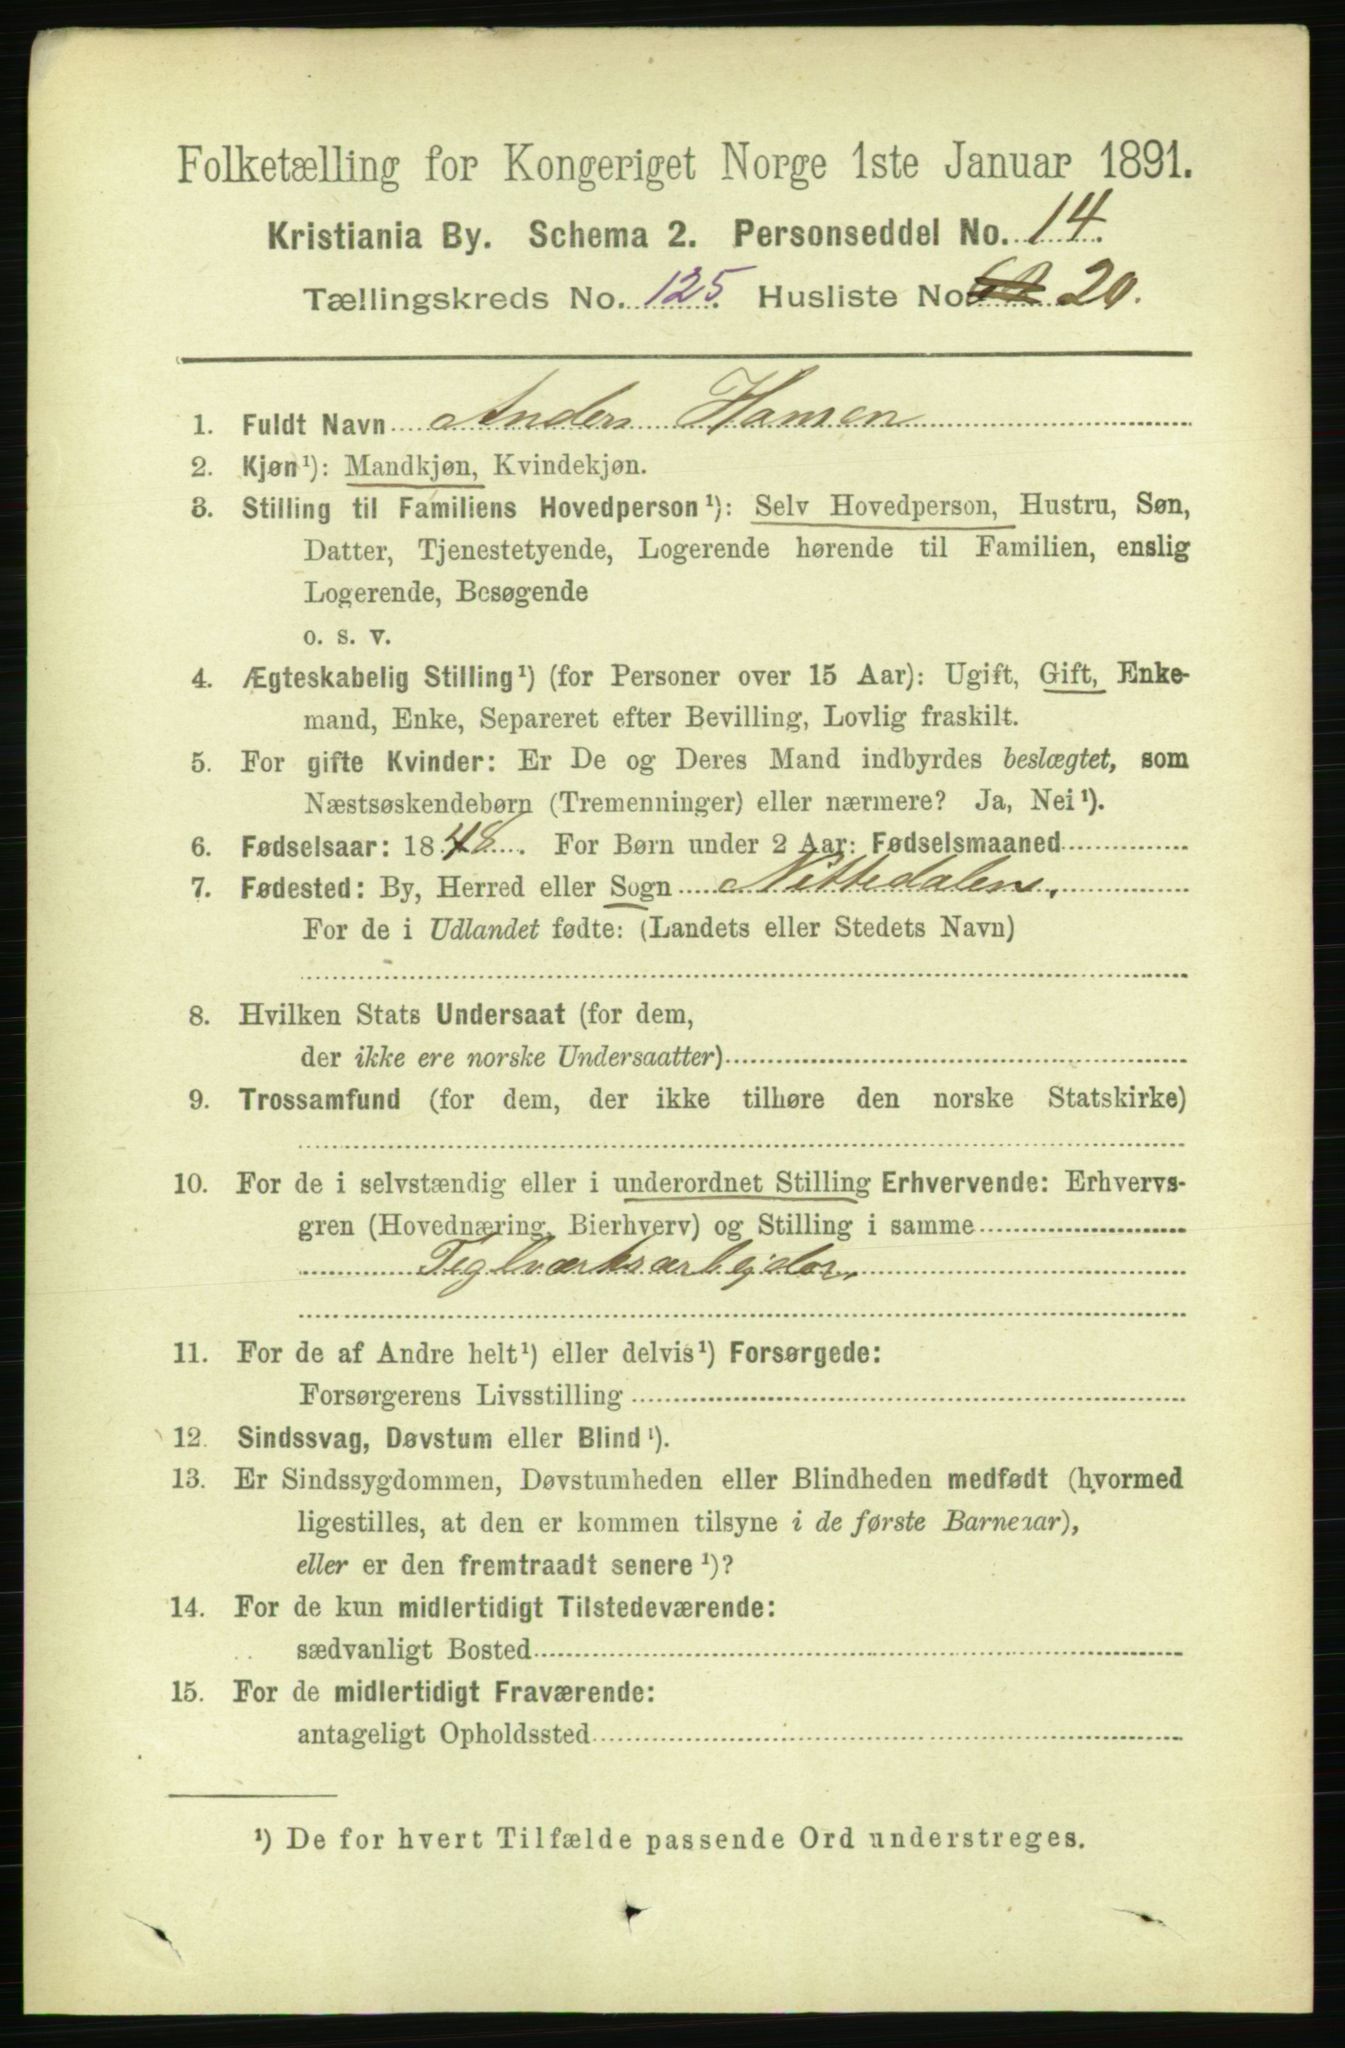 Folketælling for Kongeriget Norge 1ste Januar 1891.
Kristiania By. Schema 2. Personseddel No. 14.
Tællingskreds No. 125. Husliste No. 20.
1. Fuldt Navn Anders Hansen
2. Kjøn¹): Mandkjøn, Kvindekjøn.
3. Stilling til Familiens Hovedperson¹): Selv Hovedperson, Hustru, Søn,
Datter, Tjenestetyende, Logerende hørende til Familien, enslig
Logerende, Besøgende
o. s. v.
4. Ægteskabelig Stilling¹) (for Personer over 15 Aar): Ugift, Gift, Enke-
mand, Enke, Separeret efter Bevilling, Lovlig fraskilt.
5. For gifte Kvinder: Er De og Deres Mand indbyrdes beslægtet, som
Næstsøskendebørn (Tremenninger) eller nærmere? Ja, Nei¹).
6. Fødselsaar: 1848. For Børn under 2 Aar: Fødselsmaaned
7. Fødested: By, Herred eller Sogn Nittedalen.
For de i Udlandet fødte: (Landets eller Stedets Navn)
8. Hvilken Stats Undersaat (for dem,
der ikke ere norske Undersaatter)
9. Trossamfund (for dem, der ikke tilhøre den norske Statskirke)
10. For de i selvstændig eller i underordnet Stilling Erhvervende: Erhvervs-
gren (Hovednæring, Bierhverv) og Stilling i samme
Teglværksarbejder.
11. For de af Andre helt¹) eller delvis¹) Forsørgede:
Forsørgerens Livsstilling
12. Sindssvag, Døvstum eller Blind¹).
13. Er Sindssygdommen, Døvstumheden eller Blindheden medfødt (hvormed
ligestilles, at den er kommen tilsyne i de første Barneaar),
eller er den fremtraadt senere¹)?
14. For de kun midlertidigt Tilstedeværende:
sædvanligt Bosted
15. For de midlertidigt Fraværende:
antageligt Opholdssted
¹) De for hvert Tilfælde passende Ord understreges.